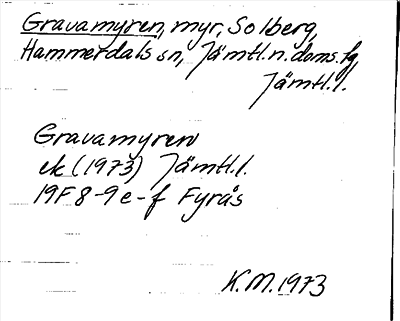 Gravamyren, myr, Solberg,
Hammerdals sn, Jämtl.n.doms.fg,
Jämtl.l.
Gravamyren
ek (1973) Jämtl.l.
19F 8-9 e-f Fyrås
K.M. 1973